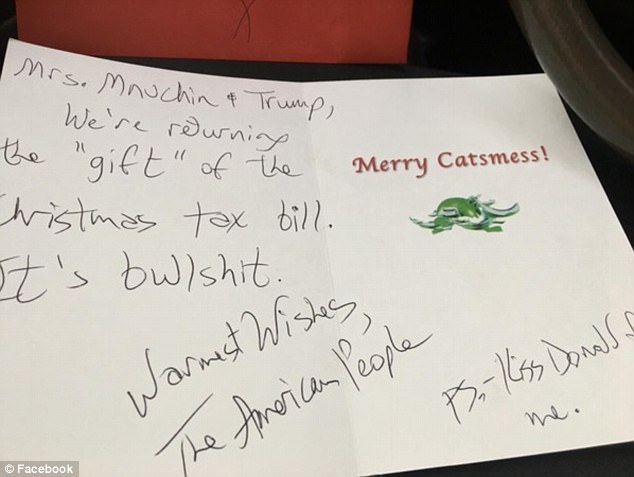 Mrs. Mnuchin & Trump,
We're returning
the "gift" of the
Christmas tax bill.
It's bullshit.
Warmest Wishes,
The American People
Merry Catsmess!
P.S. - Kiss Donald f
me.
© Facebook